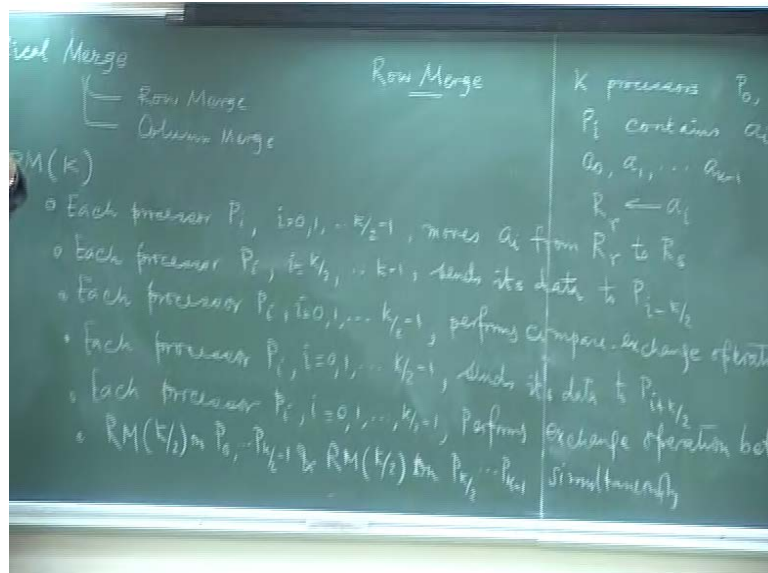 ical Merge
Row Merge
Column Merge
Row Merge
K processors P₀,
Pᵢ contains aᵢ
a₀, a₁, ... aₖ₋₁
Rᵣ ← aᵢ
RM(K)
Each processor Pᵢ, i=0,1, ... k/2-1, moves aᵢ from Rᵣ to Rₛ
Each processor Pᵢ, i=k/2, ... k-1, sends its data to Pᵢ₋ₖ/₂
Each processor Pᵢ, i=0,1, ... k/2-1, performs compare-exchange operat
Each processor Pᵢ, i=0,1, ... k/2-1, sends its data to Pᵢ₊ₖ/₂
Each processor Pᵢ, i=0,1, ..., k/2-1, Performs exchange operation bet
RM(k/2) on P₀, ... Pₖ/₂₋₁ & RM(k/2) on Pₖ/₂ ... Pₖ₋₁ simultaneously